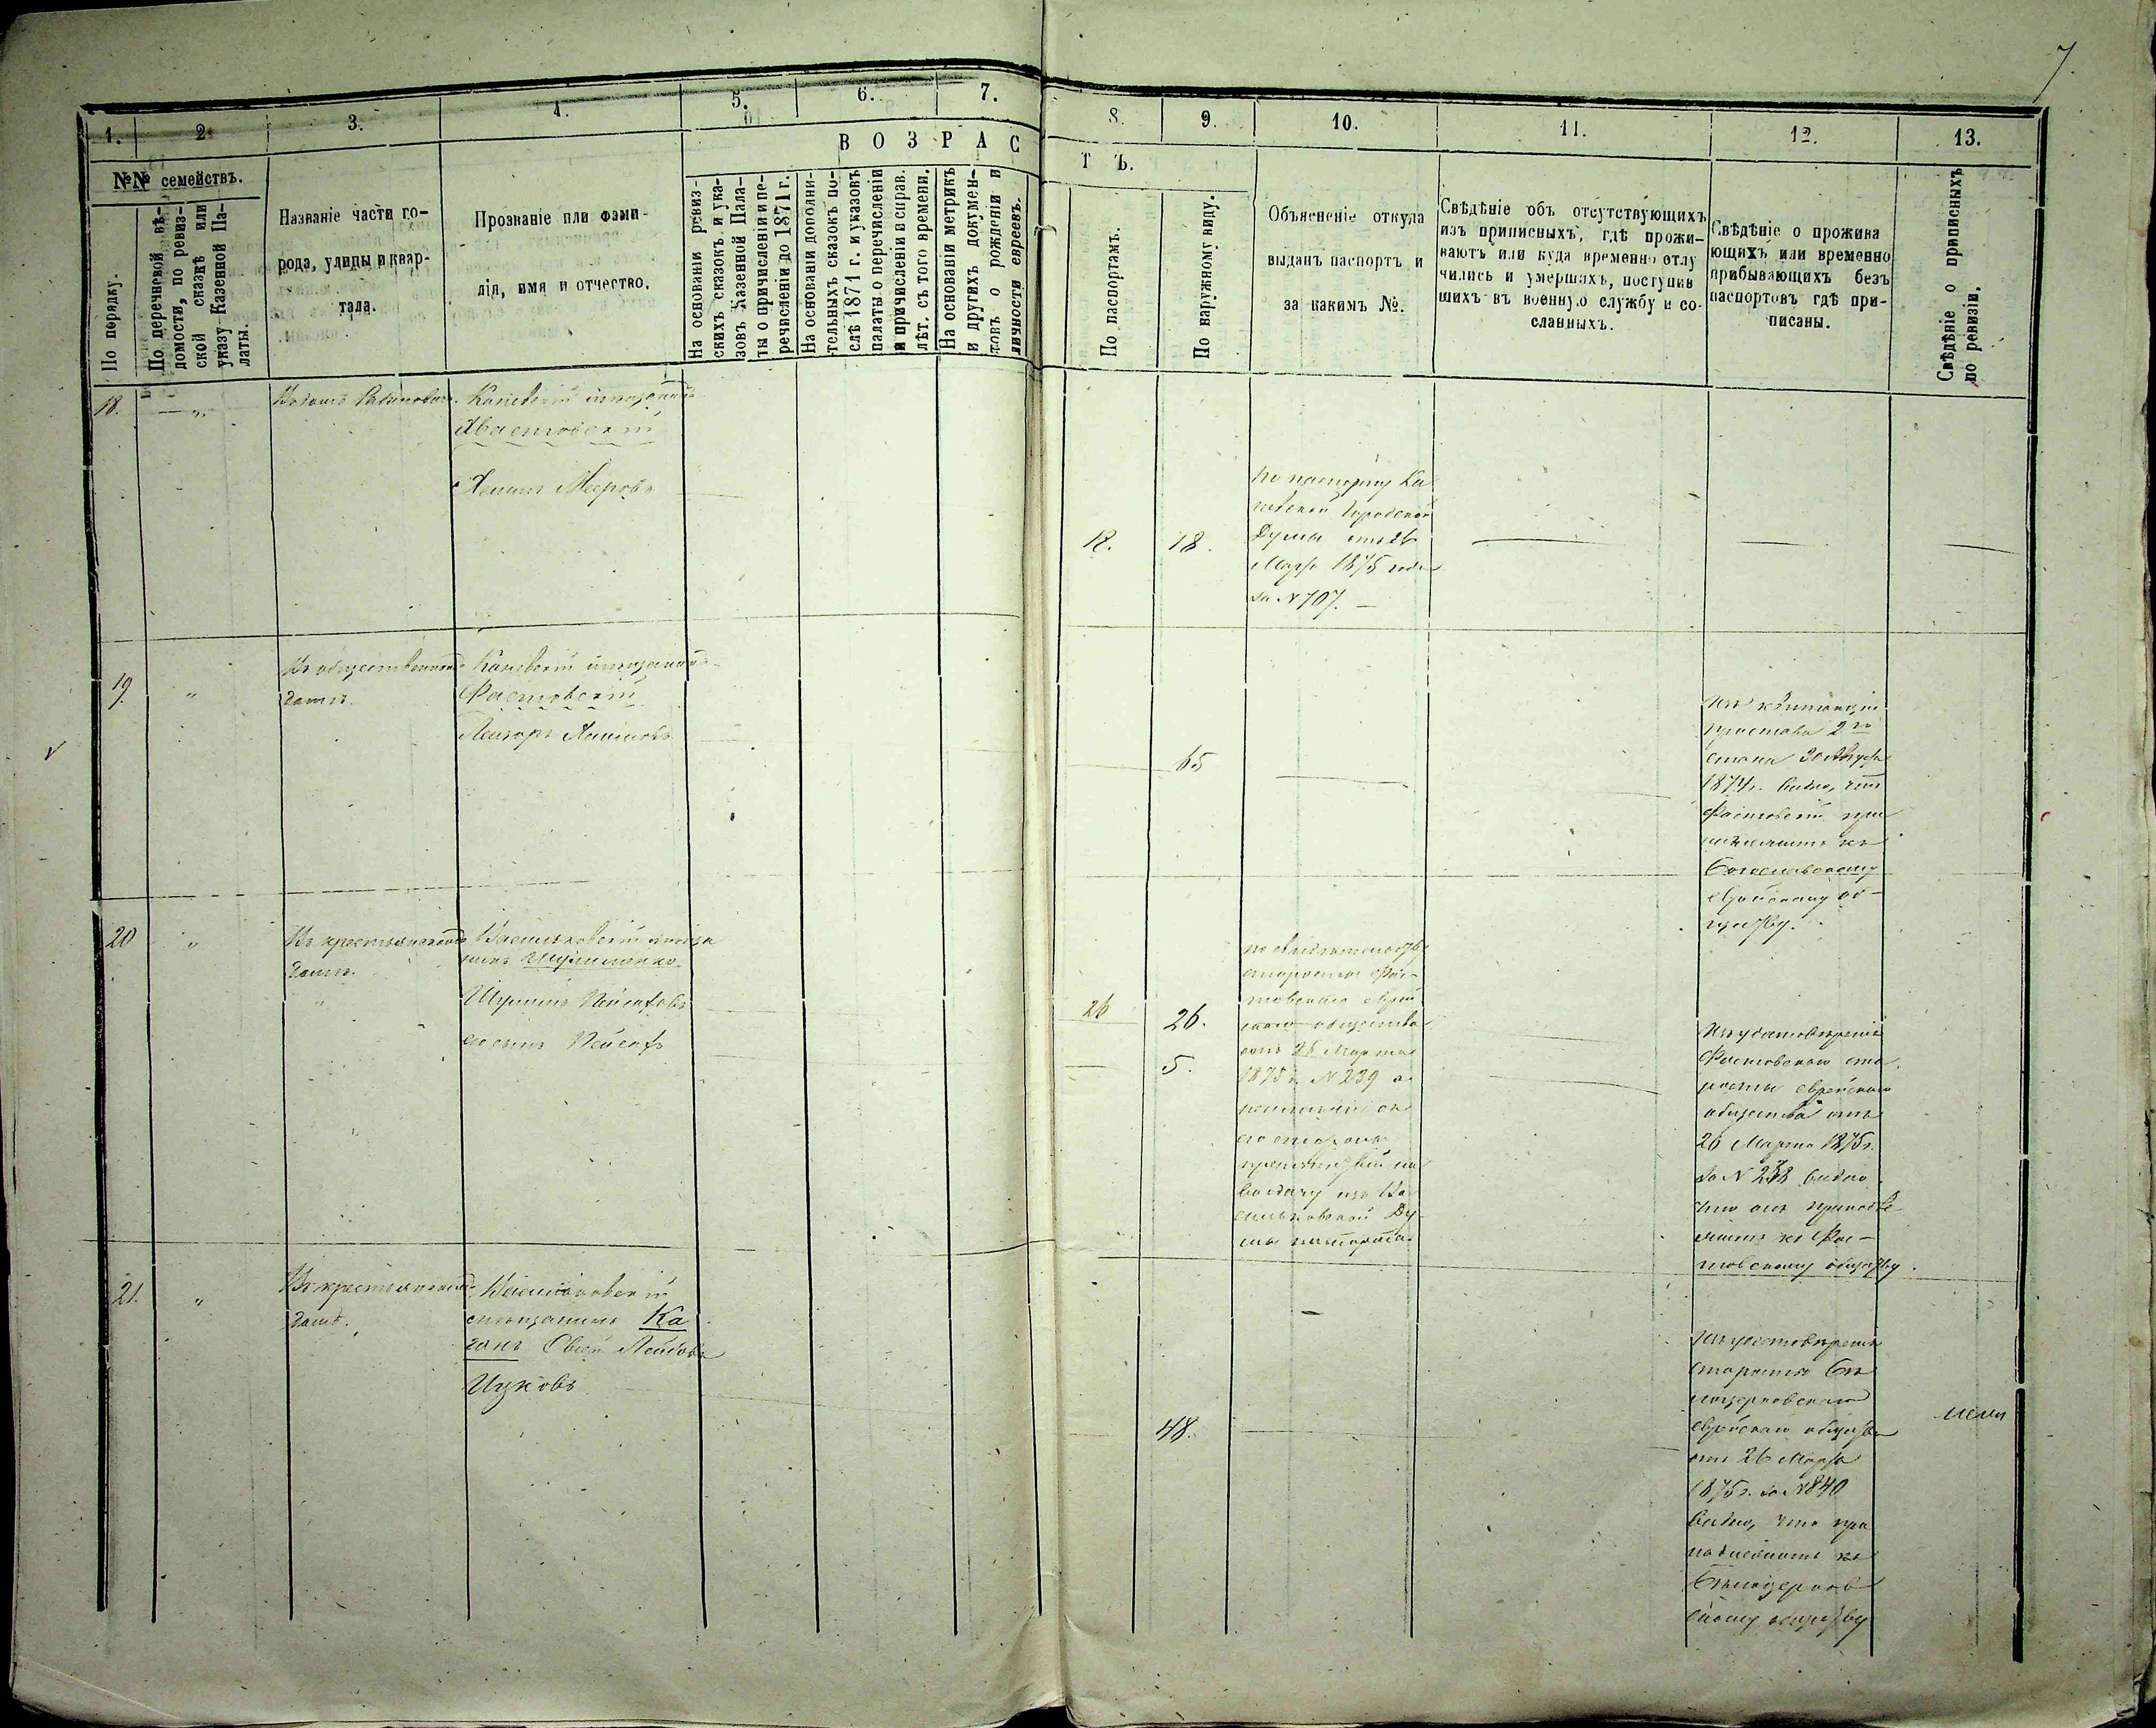 7.
1.
2
3.
4.
5.
6.
7.
8.
9.
10.
11.
12.
13.
ВОЗРАС
ТЪ.
№№ семействъ.
По порядку.
По перечневой вѣ-
домости, по ревиз-
ской сказкѣ или
указу Казенной Па-
латы.
Названіе части го-
рода, улицы и квар-
тала.
Прозваніе или фами-
лія, имя и отчество.
На основаніи ревиз-
скихъ сказокъ и ука-
зовъ Казенной Пала-
ты о причисленіи и пе-
речисленіи до 1871 г.
На основаніи дополни-
тельныхъ сказокъ по-
слѣ 1871 г. и указовъ
палаты о перечисленіи
и причисленіи в справ.
лѣт. съ того времени.
На основаніи метрикъ
и другихъ докумен-
товъ о рожденіи и
личности евреевъ.
По паспортамъ.
По наружному виду.
Объясненіе откуда
выданъ паспортъ и
за какимъ №.
Свѣдѣніе объ отсутствующихъ
изъ приписныхъ, гдѣ прожи-
ваютъ или куда временно отлу
чились и умершихъ, поступив
шихъ въ военную службу и со-
сланныхъ.
Свѣдѣніе о прожива
ющихъ или временно
прибывающихъ безъ
паспортовъ гдѣ при-
писаны.
Свѣдѣніе о приписныхъ
по ревизіи.
18.
Каневскій мѣщанинъ
Хвастовскій
Мееровъ
18.
18.
по паспорту Ка
невской Городской
Думы отъ 26
Марта 1875 года
за N 707. —
19.
Въ общественномъ
домѣ.
Каневскій мѣщанинъ
Фастовскій
65
Изъ квитанціи
пристава 2го
стана 30 Августа
1874 г. видно, что
Фастовскій при
надлежитъ къ
Богуславскому
еврейскому об-
ществу.
20
Въ крестьянскомъ
домѣ.
Васильковскій мѣща
нинъ
его сынъ
26
26.
5.
по свидѣтельству
старосты Фас-
товскаго еврей
скаго общества
отъ 26 Марта
1875 г. N 239 о
неимѣніи съ
его стороны
препятствій на
выдачу изъ Ва
сильковской Ду-
мы паспорта.
Изъ удостовѣренія
Фастовскаго ста
росты еврейскаго
общества отъ
26 Марта 1875 г.
за N 238 видно
что онъ принадле
житъ къ Фас-
товскому обществу.
21.
Въ крестьянскомъ
домѣ.
мѣщанинъ Ка
ганъ
Ицковъ
48.
Изъ удостовѣренія
старосты Бѣ
лоцерковскаго
еврейскаго общества
отъ 26 Марта
1875 г. за N 840
видно, что при
надлежитъ къ
Бѣлоцерков
скому обществу